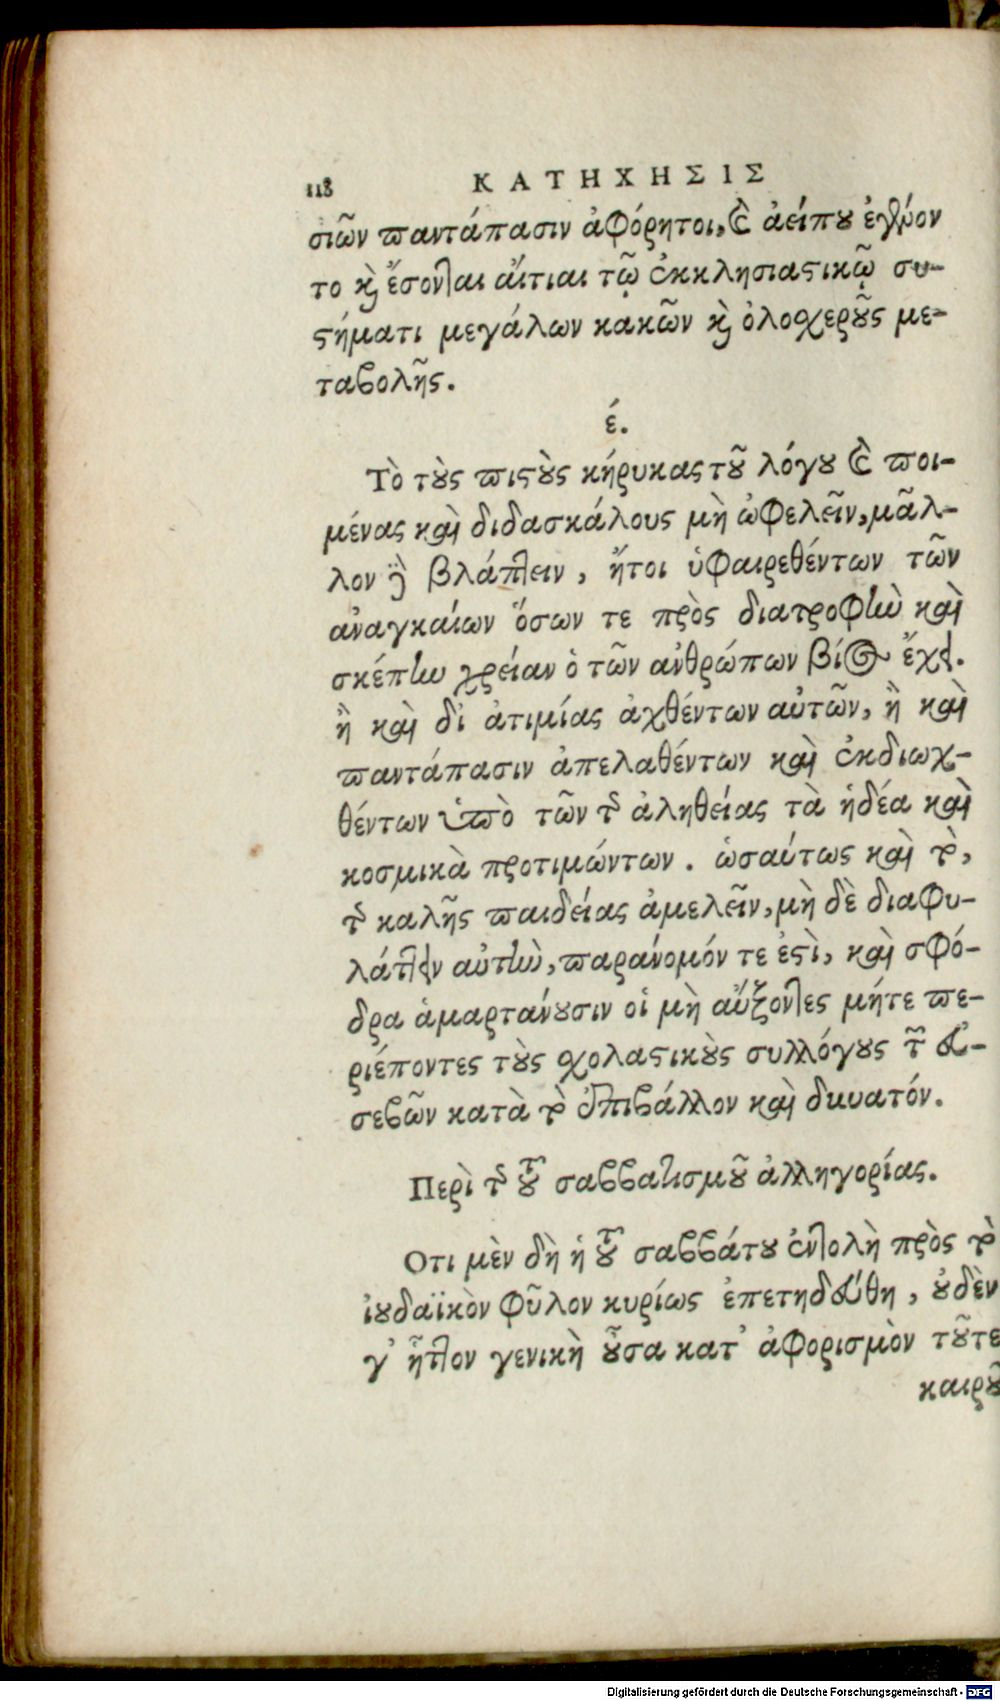 118 ΚΑΤΗΧΗΣΙΣ
σιῶν παντάπασιν ἀφόρητοι, καὶ ἀείπου ἐγένον
το καὶ ἔσονται αἴτιαι τῷ ἐκκλησιαστικῷ συ-
στήματι μεγάλων κακῶν καὶ ὁλοσχεροῦς με-
ταβολῆς.
έ.
Τὸ τοὺς πιστοὺς κήρυκας τοῦ λόγου καὶ ποι-
μένας καὶ διδασκάλους μὴ ὠφελεῖν, μᾶλ-
λον δὲ βλάπτειν, ἤτοι ὑφαιρεθέντων τῶν
ἀναγκαίων ὅσων τε πρὸς διατροφὴν καὶ
σκέπην χρείαν ὁ τῶν ἀνθρώπων βίος ἔχει.
ἢ καὶ δι᾽ ἀτιμίας ἀχθέντων αὐτῶν, ἢ καὶ
παντάπασιν ἀπελαθέντων καὶ ἐκδιωχ-
θέντων ὑπὸ τῶν τῆς ἀληθείας τὰ ἡδέα καὶ
κοσμικὰ προτιμώντων. ὡσαύτως καὶ τὸ,
τῆς καλῆς παιδείας ἀμελεῖν, μὴ δὲ διαφυ-
λάττειν αὐτὴν, παράνομόν τε ἐστὶ, καὶ σφό-
δρα ἁμαρτάνουσιν οἱ μὴ αὔξοντες μήτε πε-
ριέποντες τοὺς σχολαστικοὺς συλλόγους τῶν εὐ-
σεβῶν κατὰ τὸ ἐπιβάλλον καὶ δυνατόν.
Περὶ τῆς τοῦ σαββατισμοῦ ἀλληγορίας.
Οτι μὲν δὴ ἡ τοῦ σαββάτου ἐντολὴ πρὸς τὸ
ἰουδαϊκὸν φῦλον κυρίως ἐπετηδεύθη, οὐδὲν
γ᾽ ἧττον γενικὴ οὖσα κατ᾽ ἀφορισμὸν τοῦτε
καιροῦ
Digitalisierung gefördert durch die Deutsche Forschungsgemeinschaft - DFG